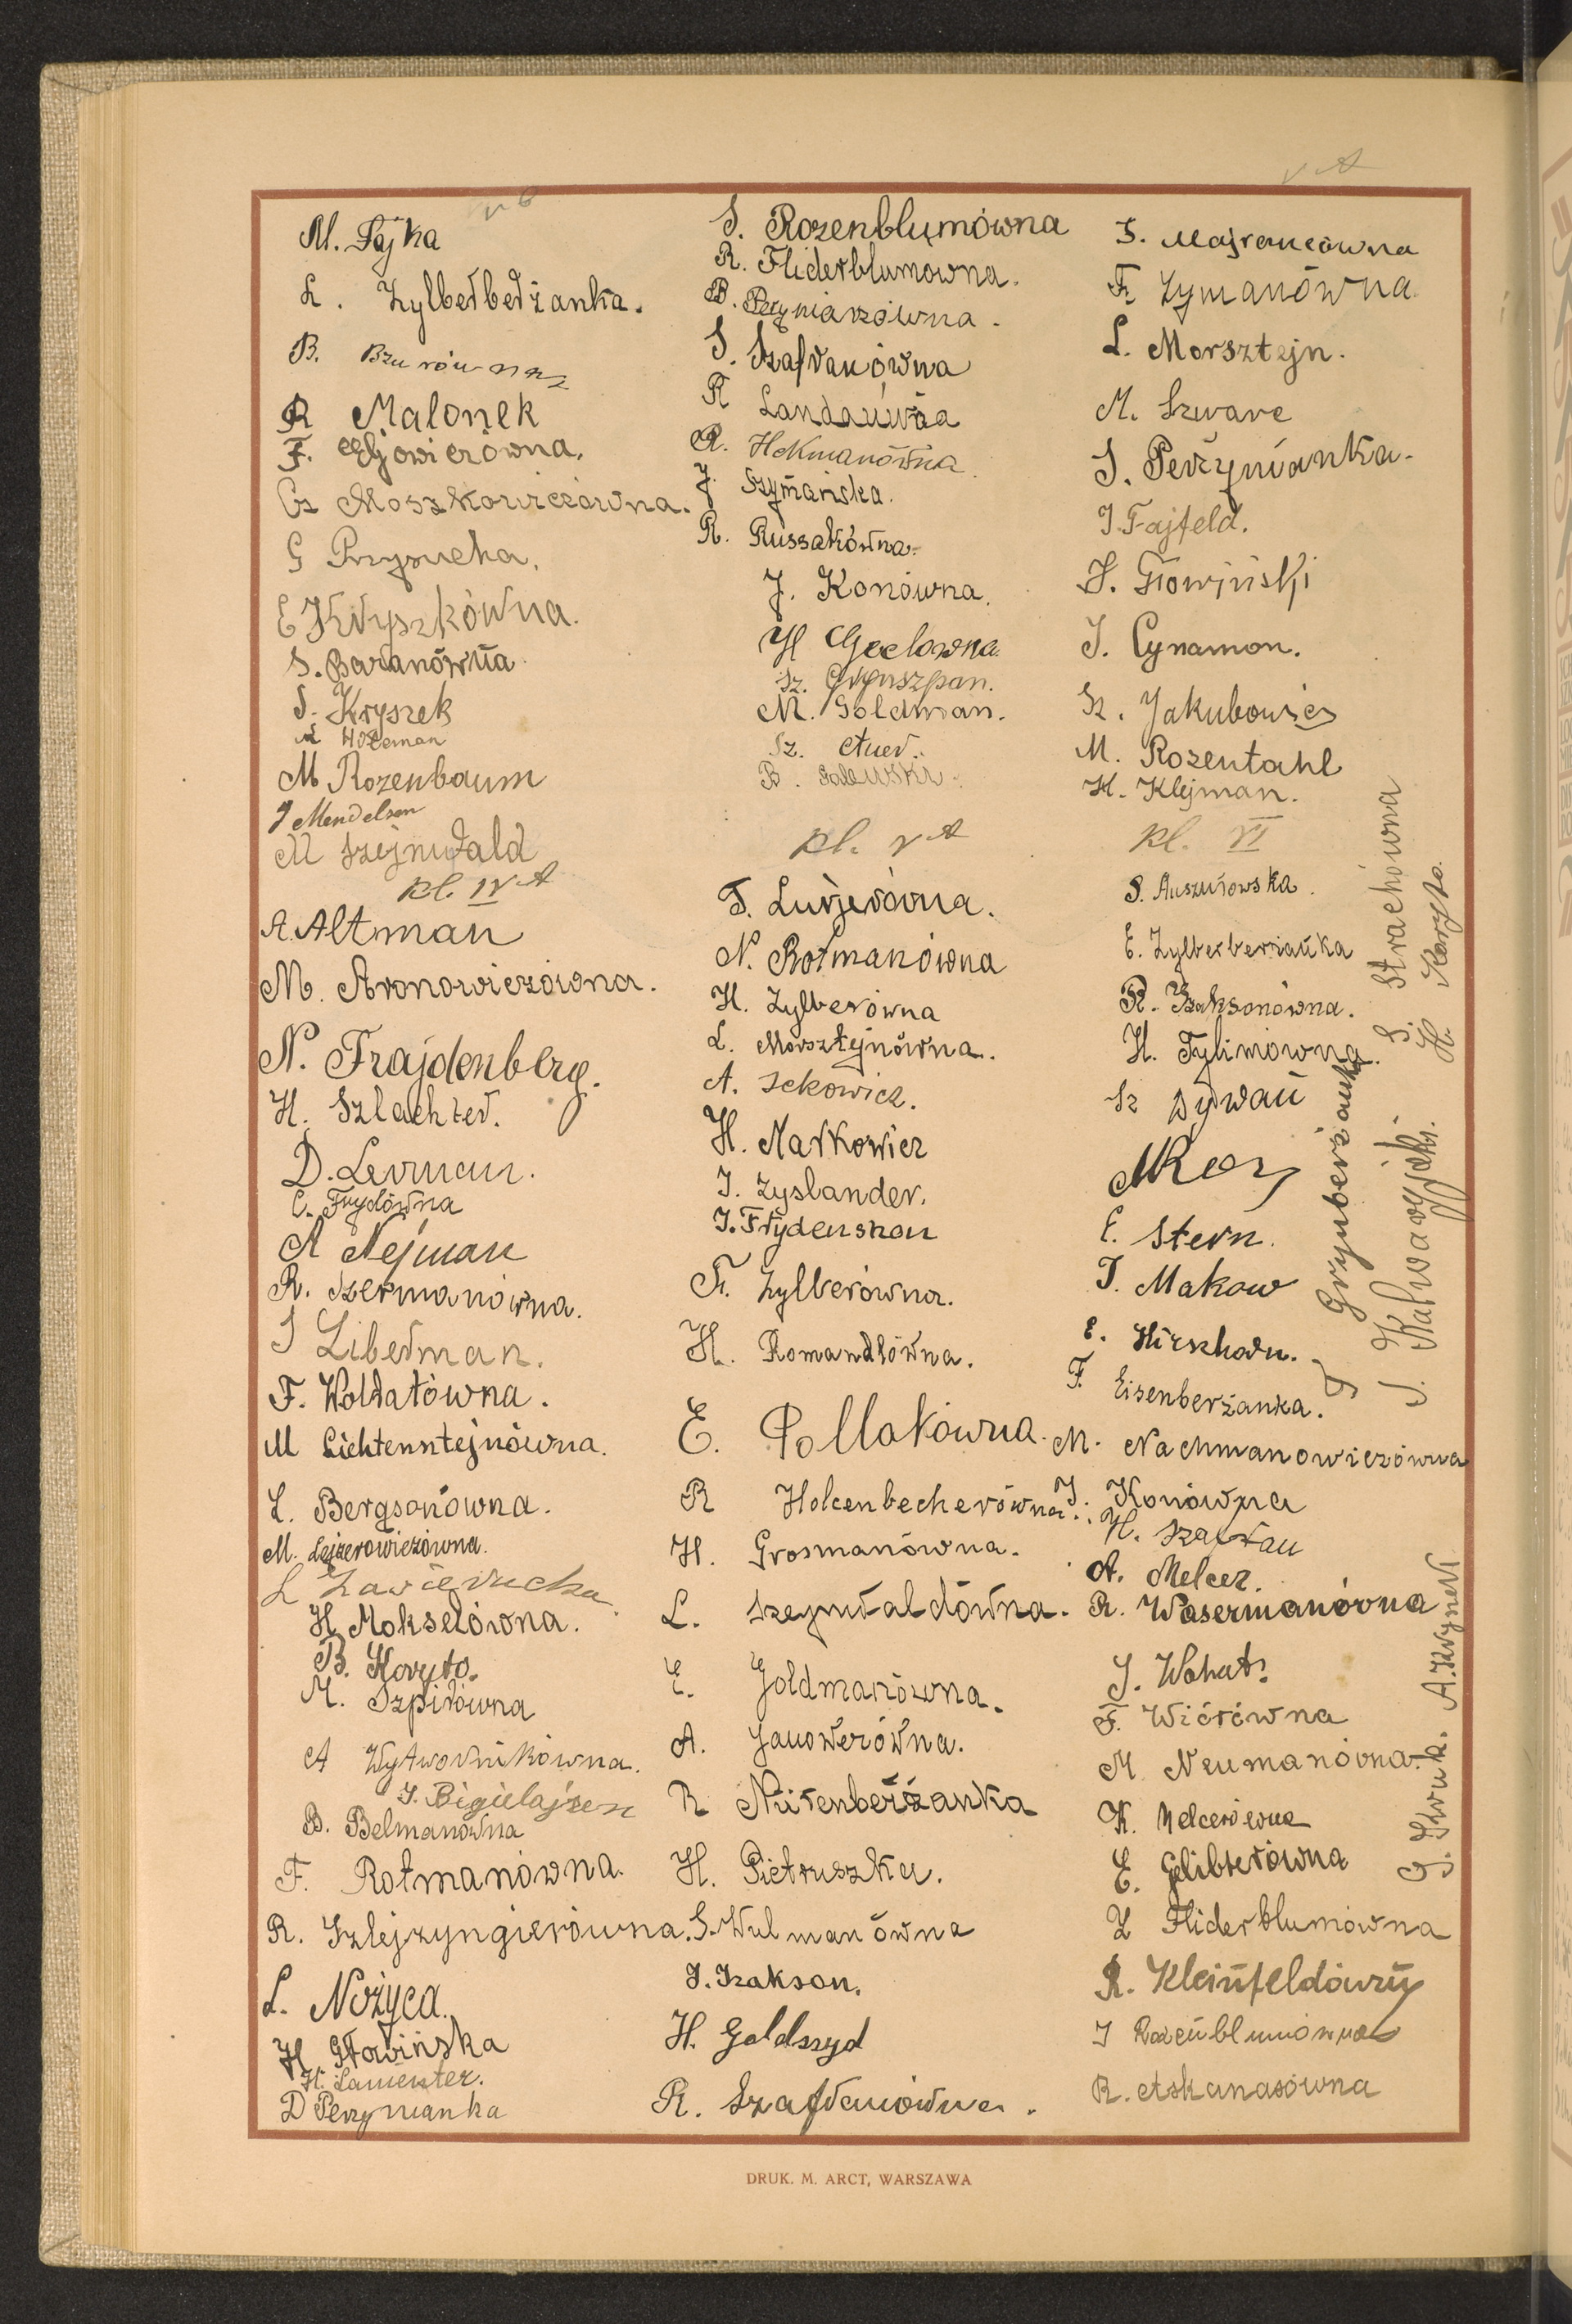 V A
M. Fajka
L. Zylberberżanka.
B. Bzurówna
R Malonek
F.
Cz Moszkowiczówna.
G Przysucha.
E Kryszkówna.
S. Baranówna
S. Kryszek
M Rozenbaum
J Mendelson
M Szejnwald
kl. IV A
A. Altman
M. Aronowiczówna.
N. Frajdenberg.
H. Szlachter.
D. Lerman.
C. Frydówna
A Nejman
R. Szermanówna.
S Liberman.
F. Woldatówna.
M Lichtensztejnówna.
L. Bergsonówna.
M. Lejzerowiczówna.
L Zawierucha.
H Mokselówna.
B. Koryto.
M. Szpirówna
A Wytwornikówna.
J. Bigielajzen
B. Belmanówna
F. Rotmanówna.
R. Szlejzyngierówna.
L. Nożyca.
H Głowińska
H. Lamenster.
D Perzynianka
S. Rozenblumówna
R. Fliderblumówna.
B.
S. Szafranówna
R Landauówna
R. Hokmanówna
J. Szymańska.
R. Russakówna.
J. Konówna.
H Geclowna.
Sz. Grynszpan.
M. Goldman.
Sz.
B.
kl. V A
T. Lurjerówna.
N. Rotmanówna
H. Zylberówna
L. Morsztejnówna.
A. Ickowicz.
H. Markowicz
J. Zyslander.
J. Frydenszon
F. Zylberówna.
H. Romandłówna.
E. Pollakówna.
R Holcenbecherówna.
H. Grosmanówna.
L. Szejnwaldówna.
E. Goldmanówna.
A. Janowerówna.
R Nirenberżanka
H. Pietruszka.
S. Wulmanówna
J. Izakson.
H. Goldszyd
R. Szafranówna.
S. Majrancówna
F. Zymanówna.
L. Morsztejn.
M. Szwarc
S. Perzynianka.
J. Fajfeld.
S. Głowiński
J. Cynamon.
Sz. Jakubowicz
M. Rozentahl
H. Klejman.
kl. VI
S.
E. Zylberberżanka
R. Izaksonówna.
H. Tylimówna.
Sz Dywan
E. Stern.
J. Makow
E. Hirszhorn.
F. Eisenberżanka.
M. Nachmanowiczówna
J. Konówna
H. Szafran
A. Melcer.
R. Wasermanówna
J.
F. Wiórówna
M Neumanówna.
K. Melcerówna
E. Gelibterówna
Z Fliderblumówna
R. Kleinfeldówny
J Rozenblumówna
R. Aszkanasówna
J Grynberżanka
S. Strachówna
H. Koryto.
J. Kaliwaryjski.
J. Struk.
DRUK. M. ARCT, WARSZAWA